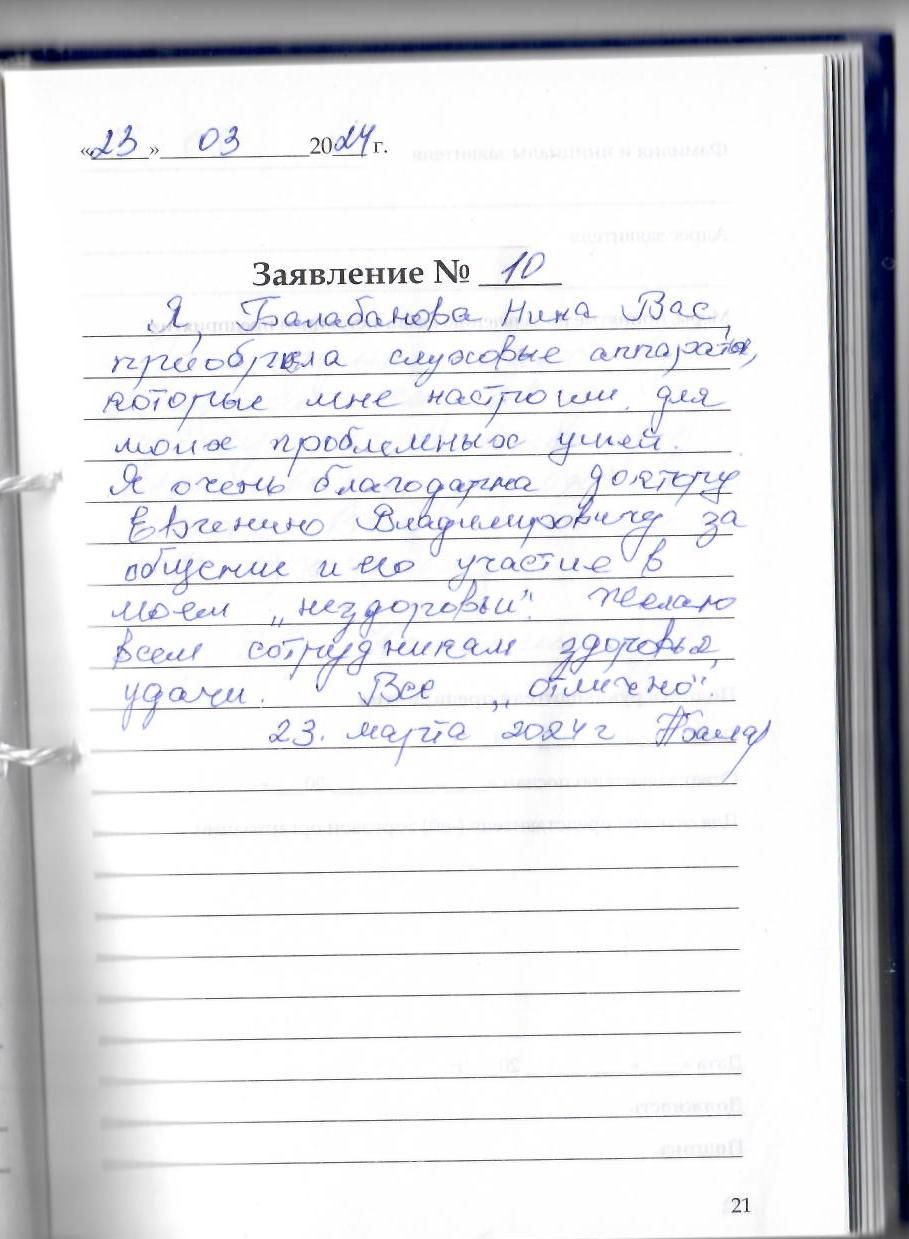 «23» 03 2024 г.
Заявление № 10
Я, Балабанова Нина Вас,
приобрела слуховые аппараты,
которые мне настроили для
моих проблемных ушей.
Я очень благодарна доктору
Евгению Владимировичу за
общение и его участие в
моем „нездоровьи". Желаю
всем сотрудникам здоровья,
удачи. Все „отлично".
23. марта 2024 г
21